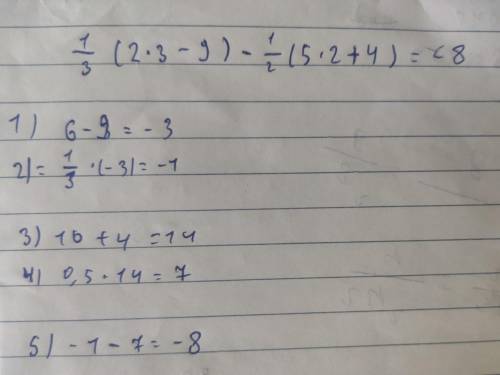 1/3 (2·3-9) - 1/2 (5·2+4) = -8
1) 6-9 = -3
2) = 1/3 ·(-3) = -1
3) 10+4 = 14
4) 0,5·14 = 7
5) -1-7 = -8